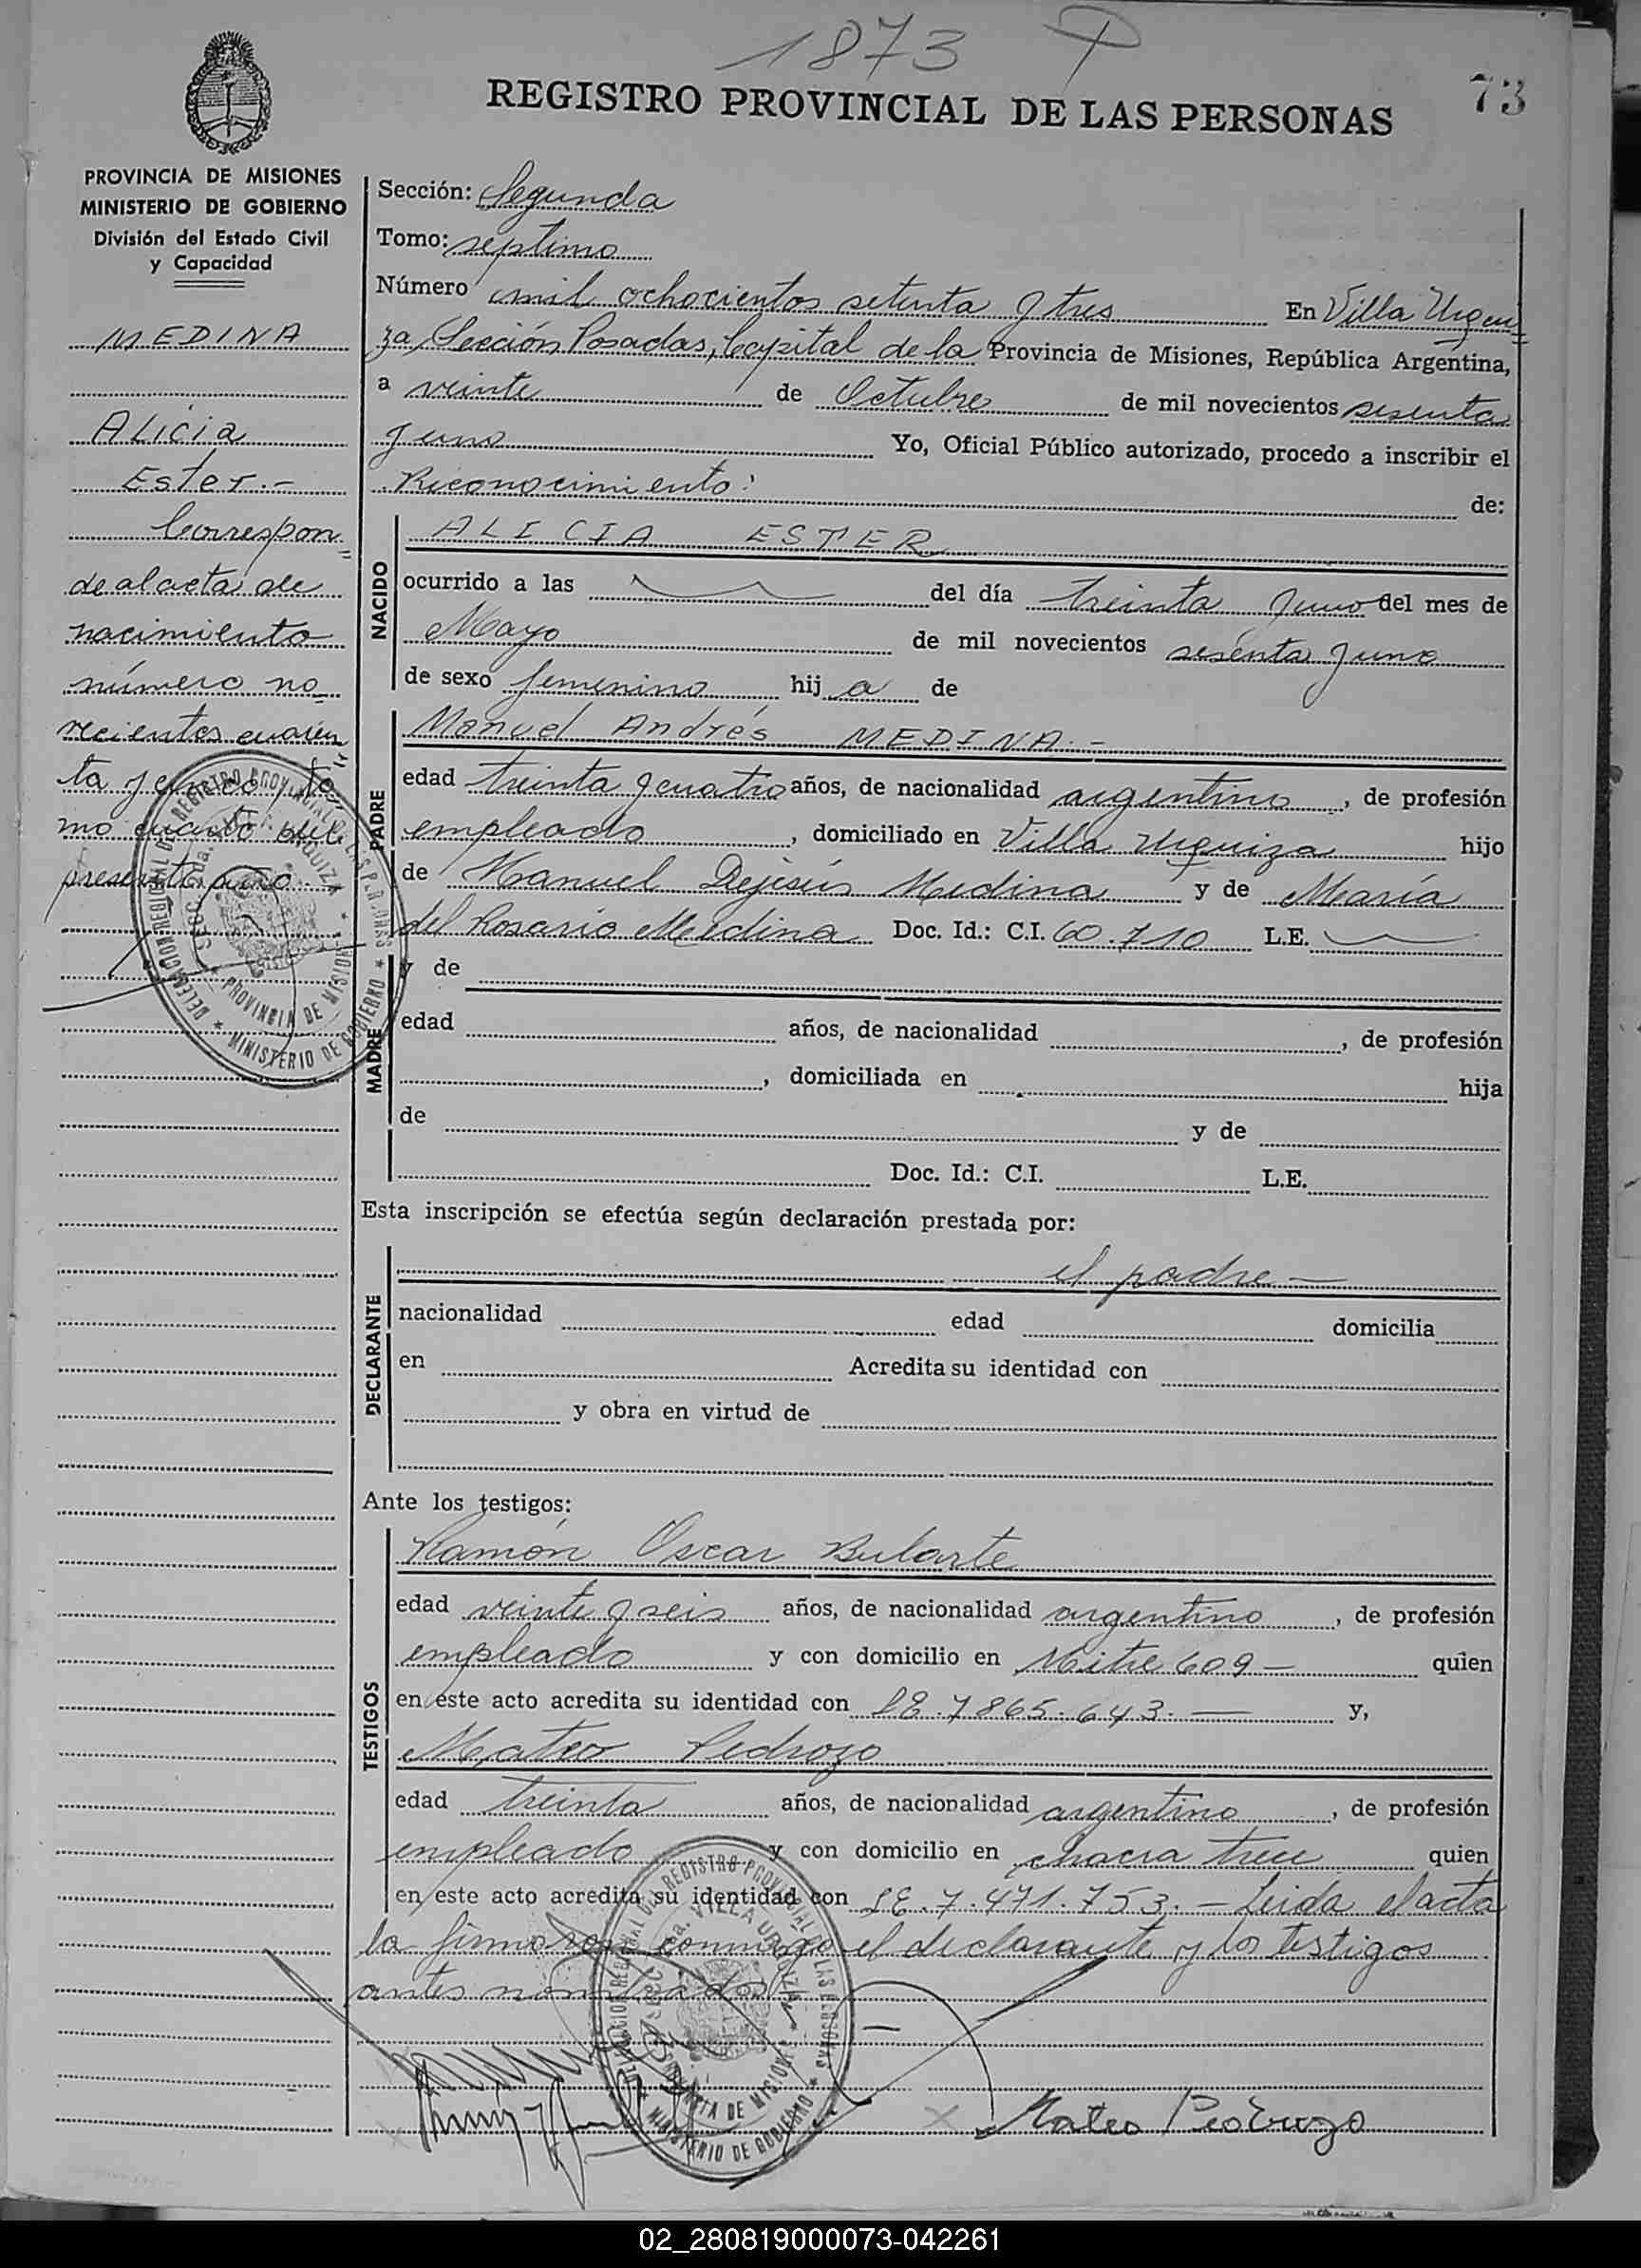 1873
73
REGISTRO PROVINCIAL DE LAS PERSONAS
PROVINCIA DE MISIONES
MINISTERIO DE GOBIERNO
División del Estado Civil
y Capacidad
MEDINA
Alicia
Ester.-
Correspon=
de al acta de
nacimiento
número no_
vecientos cuaren
ta y cinco, to=
mo cuarto del
presente año
Sección: Segunda
Tomo: septimo
Número mil ochocientos setenta y tres En Villa Urqui=
za, Sección Posadas, Capital de la Provincia de Misiones, República Argentina,
a veinte de Octubre de mil novecientos sesenta
y uno Yo, Oficial Público autorizado, procedo a inscribir el
Riconocimiento: de:
NACIDO
ALICIA ESTER
ocurrido a las del día treinta y uno del mes de
Mayo de mil novecientos sesenta y uno
de sexo femenino hij a de
PADRE
Manuel Andrés MEDINA.-
edad treinta y cuatro años, de nacionalidad argentino, de profesión
empleado, domiciliado en Villa Urquiza hijo
de Manuel Dejesús Medina y de María
del Rosario Medina Doc. Id.: C.I. 60.710 L.E.
MADRE
y de
edad años, de nacionalidad , de profesión
, domiciliada en hija
de y de
Doc. Id.: C.I. L.E.
Esta inscripción se efectúa según declaración prestada por:
DECLARANTE
el padre—
nacionalidad edad domicilia
en Acredita su identidad con
y obra en virtud de
Ante los testigos:
TESTIGOS
Ramón Oscar Bularte
edad veinte y seis años, de nacionalidad argentino, de profesión
empleado y con domicilio en Mitre 609- quien
en este acto acredita su identidad con LE.7865.643.— y,
Mateo Pedrozo
edad treinta años, de nacionalidad argentino, de profesión
empleado y con domicilio en chacra trece quien
en este acto acredita su identidad con LE.7.471.753.- Leida el acta
la firmaron conmigo el declarante y los testigos
antes nombrados
DELEGACION REGIONAL DEL REGISTRO PROVINCIAL DE LAS PERSONAS
SECC. 2da. VILLA URQUIZA
PROVINCIA DE MISIONES
MINISTERIO DE GOBIERNO
Mateo Pedrozo
02_280819000073-042261